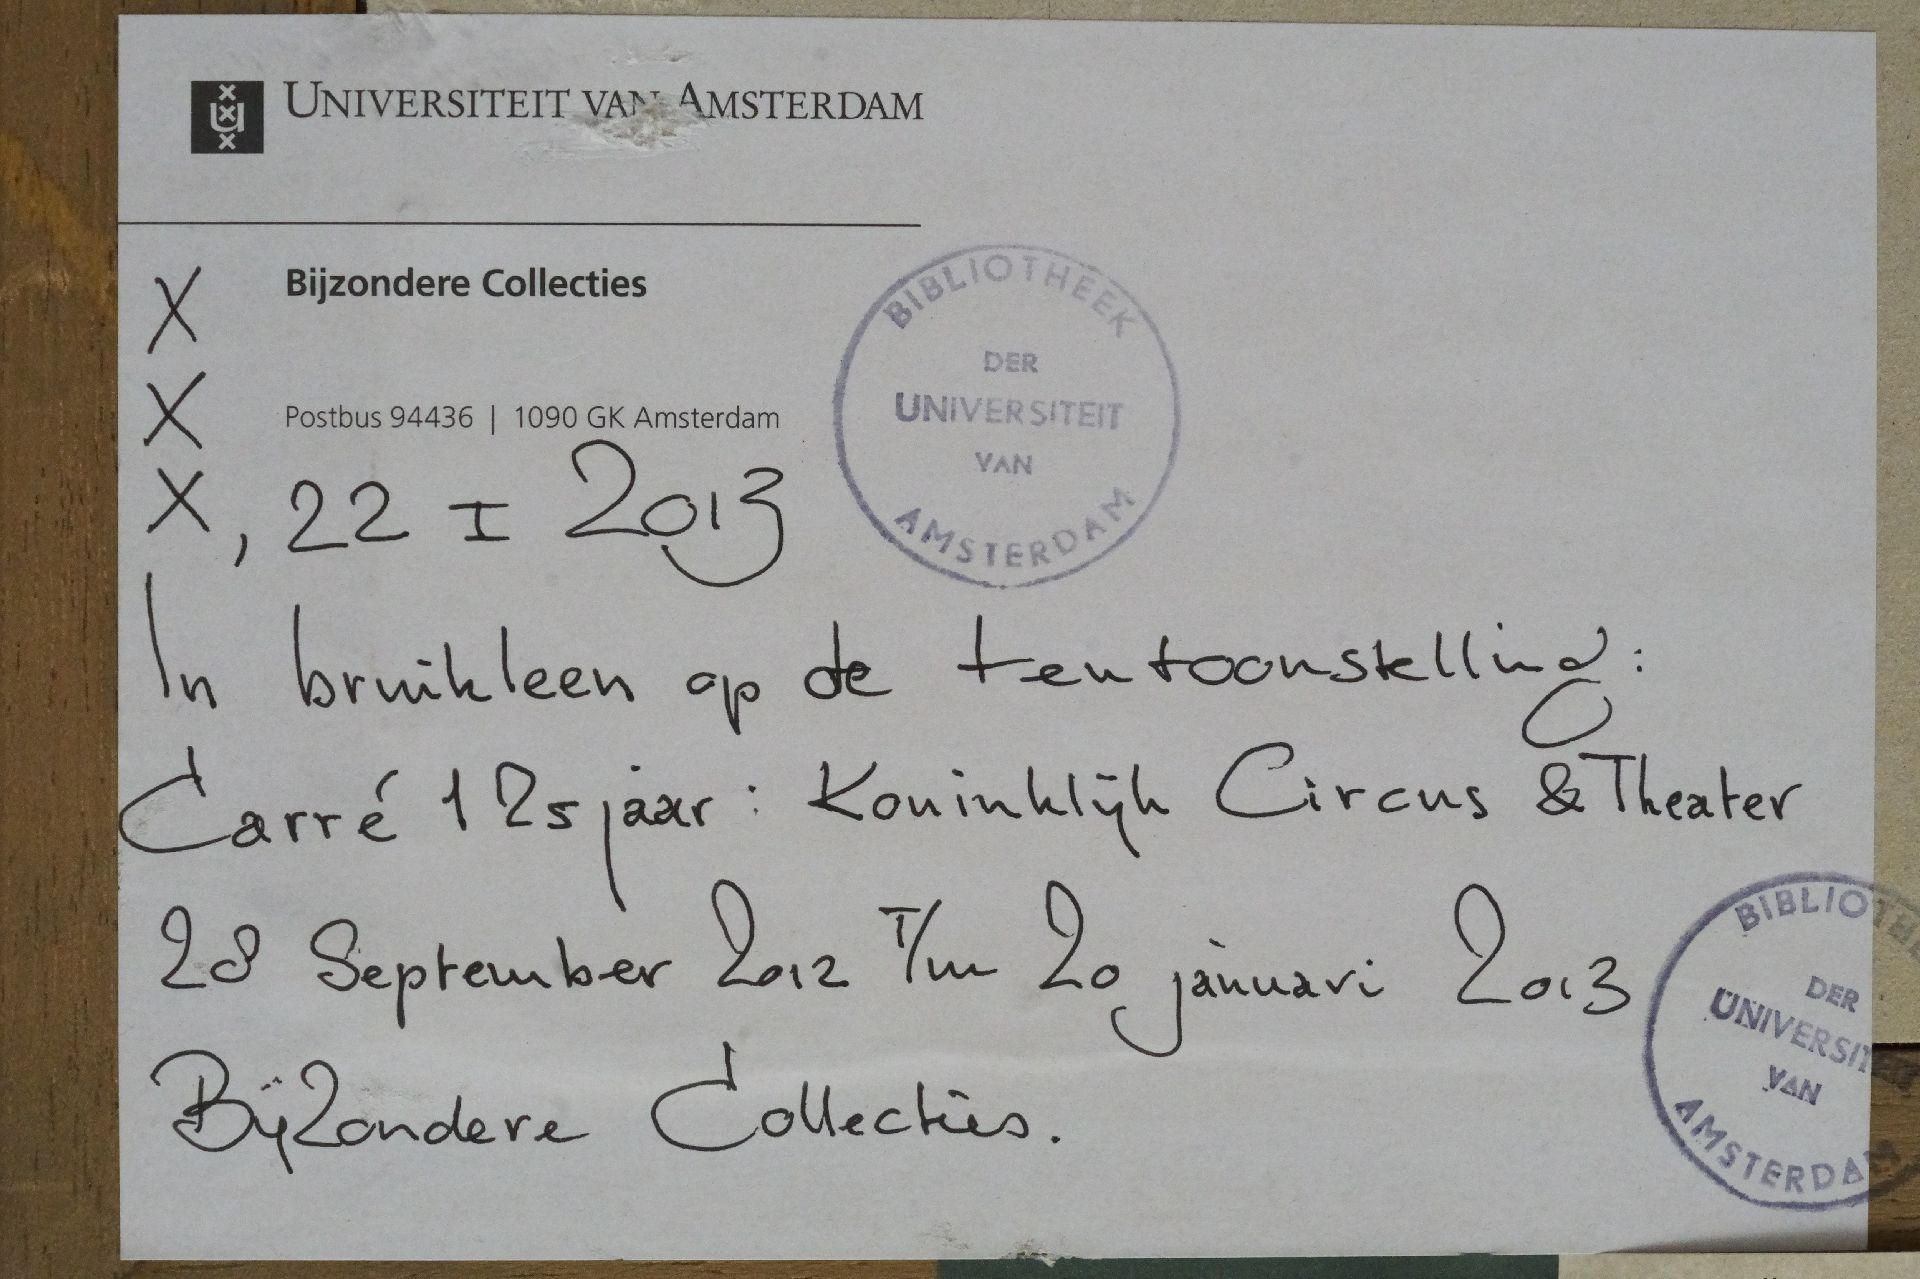 UNIVERSITEIT VAN AMSTERDAM
Bijzondere Collecties
Postbus 94436 | 1090 GK Amsterdam
X
X
X, 22 I 2013
BIBLIOTHEEK
DER
UNIVERSITEIT
VAN
AMSTERDAM
In bruikleen op de tentoonstelling:
Carré 125 jaar: Koninklijk Circus & Theater
28 September 2012 T/m 20 januari 2013
Bijzondere Collecties.
BIBLIOTHEE
DER
UNIVERSIT
VAN
AMSTERDAM